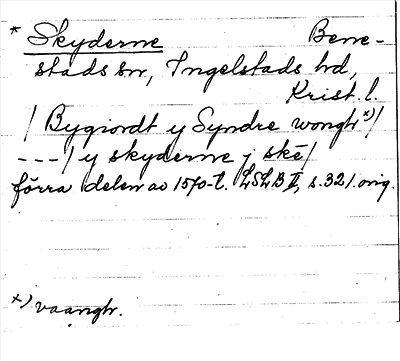 * Skyderne Bene-
stads sn, Ingelstads hd,
Krist. l.
/ Bygiordt y Syndre wongh *) /
---/ y skyderne j skē /
förra delen av 1570-t. LSLB II, s. 321. orig.
*) vaangh.